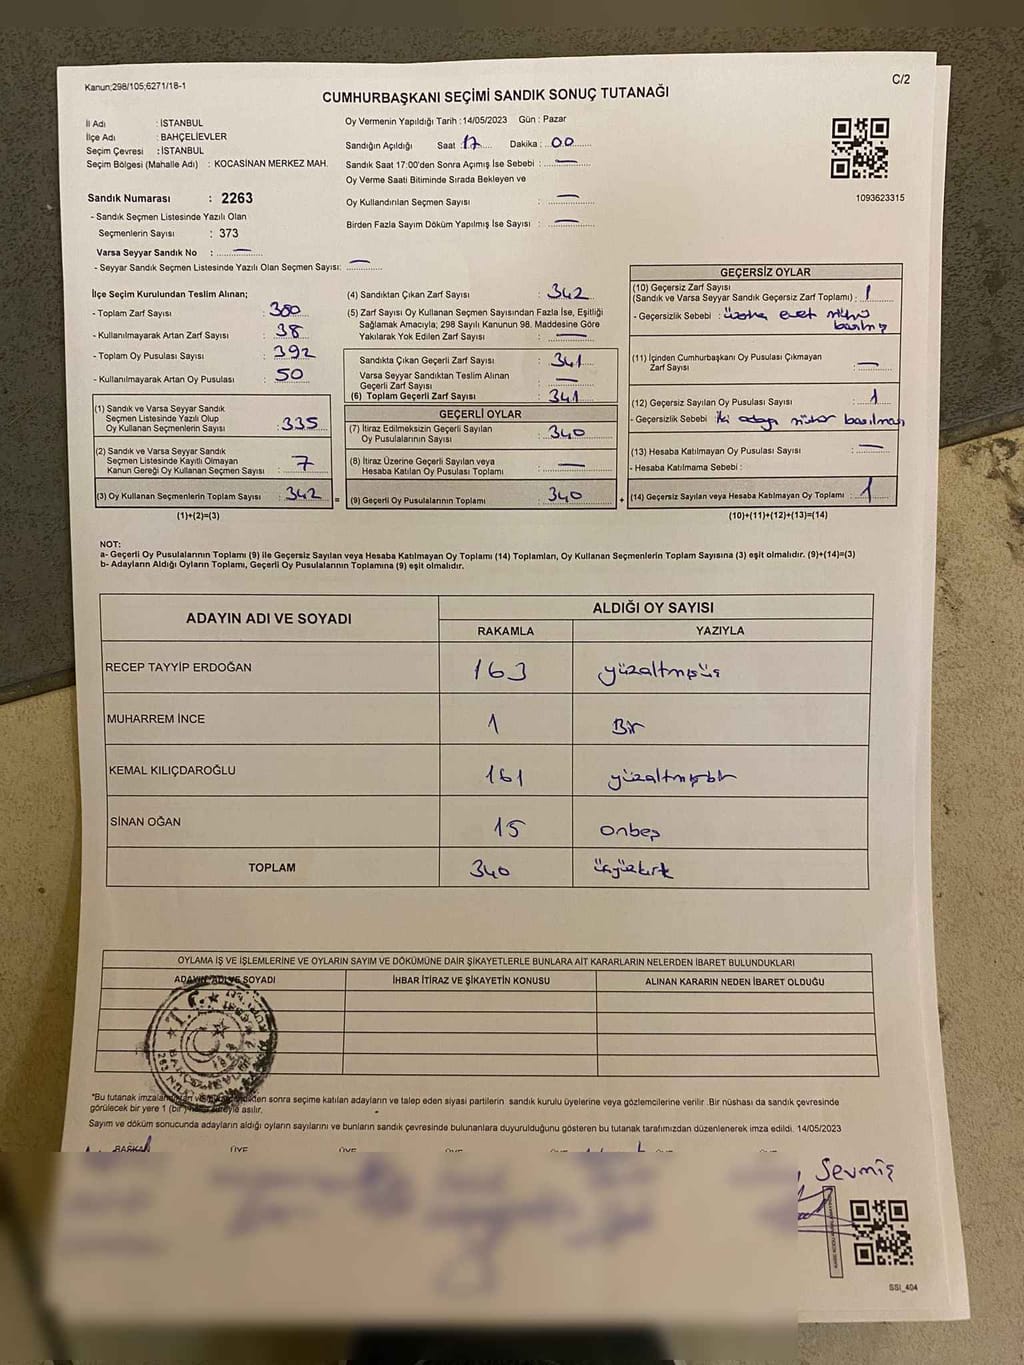 Kanun;298/105;6271/18-1
C/2
CUMHURBAŞKANI SEÇİMİ SANDIK SONUÇ TUTANAĞI
İl Adı : İSTANBUL
İlçe Adı : BAHÇELİEVLER
Seçim Çevresi : İSTANBUL
Seçim Bölgesi (Mahalle Adı) : KOCASİNAN MERKEZ MAH.
Sandık Numarası : 2263
- Sandık Seçmen Listesinde Yazılı Olan
Seçmenlerin Sayısı : 373
Varsa Seyyar Sandık No : —
- Seyyar Sandık Seçmen Listesinde Yazılı Olan Seçmen Sayısı: —
Oy Vermenin Yapıldığı Tarih : 14/05/2023 Gün : Pazar
Sandığın Açıldığı Saat : 17 Dakika : 00
Sandık Saat 17:00'den Sonra Açımış İse Sebebi : —
Oy Verme Saati Bitiminde Sırada Bekleyen ve
Oy Kullandırılan Seçmen Sayısı : —
Birden Fazla Sayım Döküm Yapılmış İse Sayısı : —
1093623315
İlçe Seçim Kurulundan Teslim Alınan;
- Toplam Zarf Sayısı : 380
- Kullanılmayarak Artan Zarf Sayısı : 38
- Toplam Oy Pusulası Sayısı : 392
- Kullanılmayarak Artan Oy Pusulası : 50
(1) Sandık ve Varsa Seyyar Sandık
Seçmen Listesinde Yazılı Olup
Oy Kullanan Seçmenlerin Sayısı : 335
(2) Sandık ve Varsa Seyyar Sandık
Seçmen Listesinde Kayıtlı Olmayan
Kanun Gereği Oy Kullanan Seçmen Sayısı : 7
(3) Oy Kullanan Seçmenlerin Toplam Sayısı : 342 =
(1)+(2)=(3)
(4) Sandıktan Çıkan Zarf Sayısı : 342
(5) Zarf Sayısı Oy Kullanan Seçmen Sayısından Fazla İse, Eşitliği
Sağlamak Amacıyla; 298 Sayılı Kanunun 98. Maddesine Göre
Yakılarak Yok Edilen Zarf Sayısı : —
Sandıkta Çıkan Geçerli Zarf Sayısı : 341
Varsa Seyyar Sandıktan Teslim Alınan
Geçerli Zarf Sayısı : —
(6) Toplam Geçerli Zarf Sayısı : 341
GEÇERLİ OYLAR
(7) İtiraz Edilmeksizin Geçerli Sayılan
Oy Pusulalarının Sayısı : 340
(8) İtiraz Üzerine Geçerli Sayılan veya
Hesaba Katılan Oy Pusulası Toplamı : —
(9) Geçerli Oy Pusulalarının Toplamı : 340 +
GEÇERSİZ OYLAR
(10) Geçersiz Zarf Sayısı
(Sandık ve Varsa Seyyar Sandık Geçersiz Zarf Toplamı) : 1
- Geçersizlik Sebebi : üstüne evet mührü
basılmış
(11) İçinden Cumhurbaşkanı Oy Pusulası Çıkmayan
Zarf Sayısı : —
(12) Geçersiz Sayılan Oy Pusulası Sayısı : 1
- Geçersizlik Sebebi : iki adaya mühür basılması
(13) Hesaba Katılmayan Oy Pusulası Sayısı : —
- Hesaba Katılmama Sebebi :
(14) Geçersiz Sayılan veya Hesaba Katılmayan Oy Toplamı : 1
(10)+(11)+(12)+(13)=(14)
NOT:
a- Geçerli Oy Pusulalarının Toplamı (9) ile Geçersiz Sayılan veya Hesaba Katılmayan Oy Toplamı (14) Toplamları, Oy Kullanan Seçmenlerin Toplam Sayısına (3) eşit olmalıdır. (9)+(14)=(3)
b- Adayların Aldığı Oyların Toplamı, Geçerli Oy Pusulalarının Toplamına (9) eşit olmalıdır.
ADAYIN ADI VE SOYADI
ALDIĞI OY SAYISI
RAKAMLA YAZIYLA
RECEP TAYYİP ERDOĞAN 163 yüzaltmışüç
MUHARREM İNCE 1 Bir
KEMAL KILIÇDAROĞLU 161 yüzaltmışbir
SİNAN OĞAN 15 onbeş
TOPLAM 340 üçyüzkırk
OYLAMA İŞ VE İŞLEMLERİNE VE OYLARIN SAYIM VE DÖKÜMÜNE DAİR ŞİKAYETLERLE BUNLARA AİT KARARLARIN NELERDEN İBARET BULUNDUKLARI
ADAYIN ADI VE SOYADI İHBAR İTİRAZ VE ŞİKAYETİN KONUSU ALINAN KARARIN NEDEN İBARET OLDUĞU
T.C.
*Bu tutanak imzalandıktan sonra seçime katılan adayların ve talep eden siyasi partilerin sandık kurulu üyelerine veya gözlemcilerine verilir .Bir nüshası da sandık çevresinde
görülecek bir yere 1 (bir) asılır.
Sayım ve döküm sonucunda adayların aldığı oyların sayılarını ve bunların sandık çevresinde bulunanlara duyurulduğunu gösteren bu tutanak tarafımızdan düzenlenerek imza edildi. 14/05/2023
BAŞKAN ÜYE ÜYE ÜYE ÜYE
Sevmiş
SSI_404